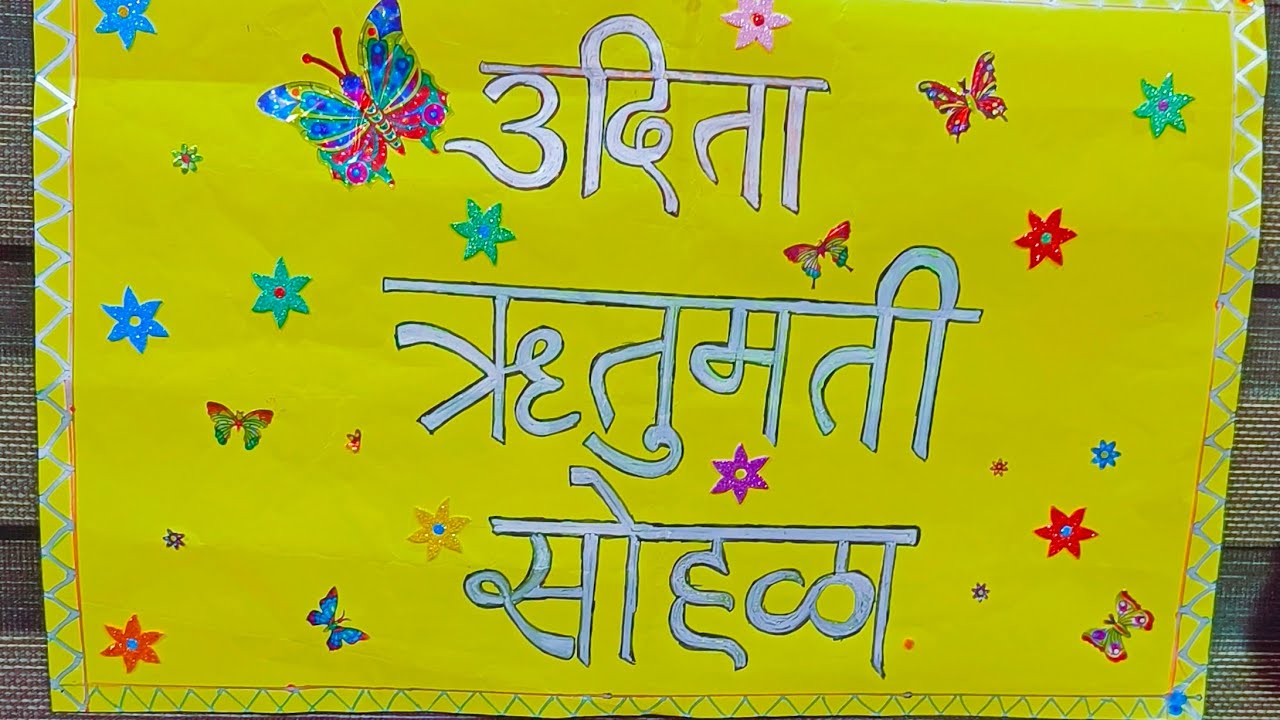 उदिता
ऋतुमती
सोहळा